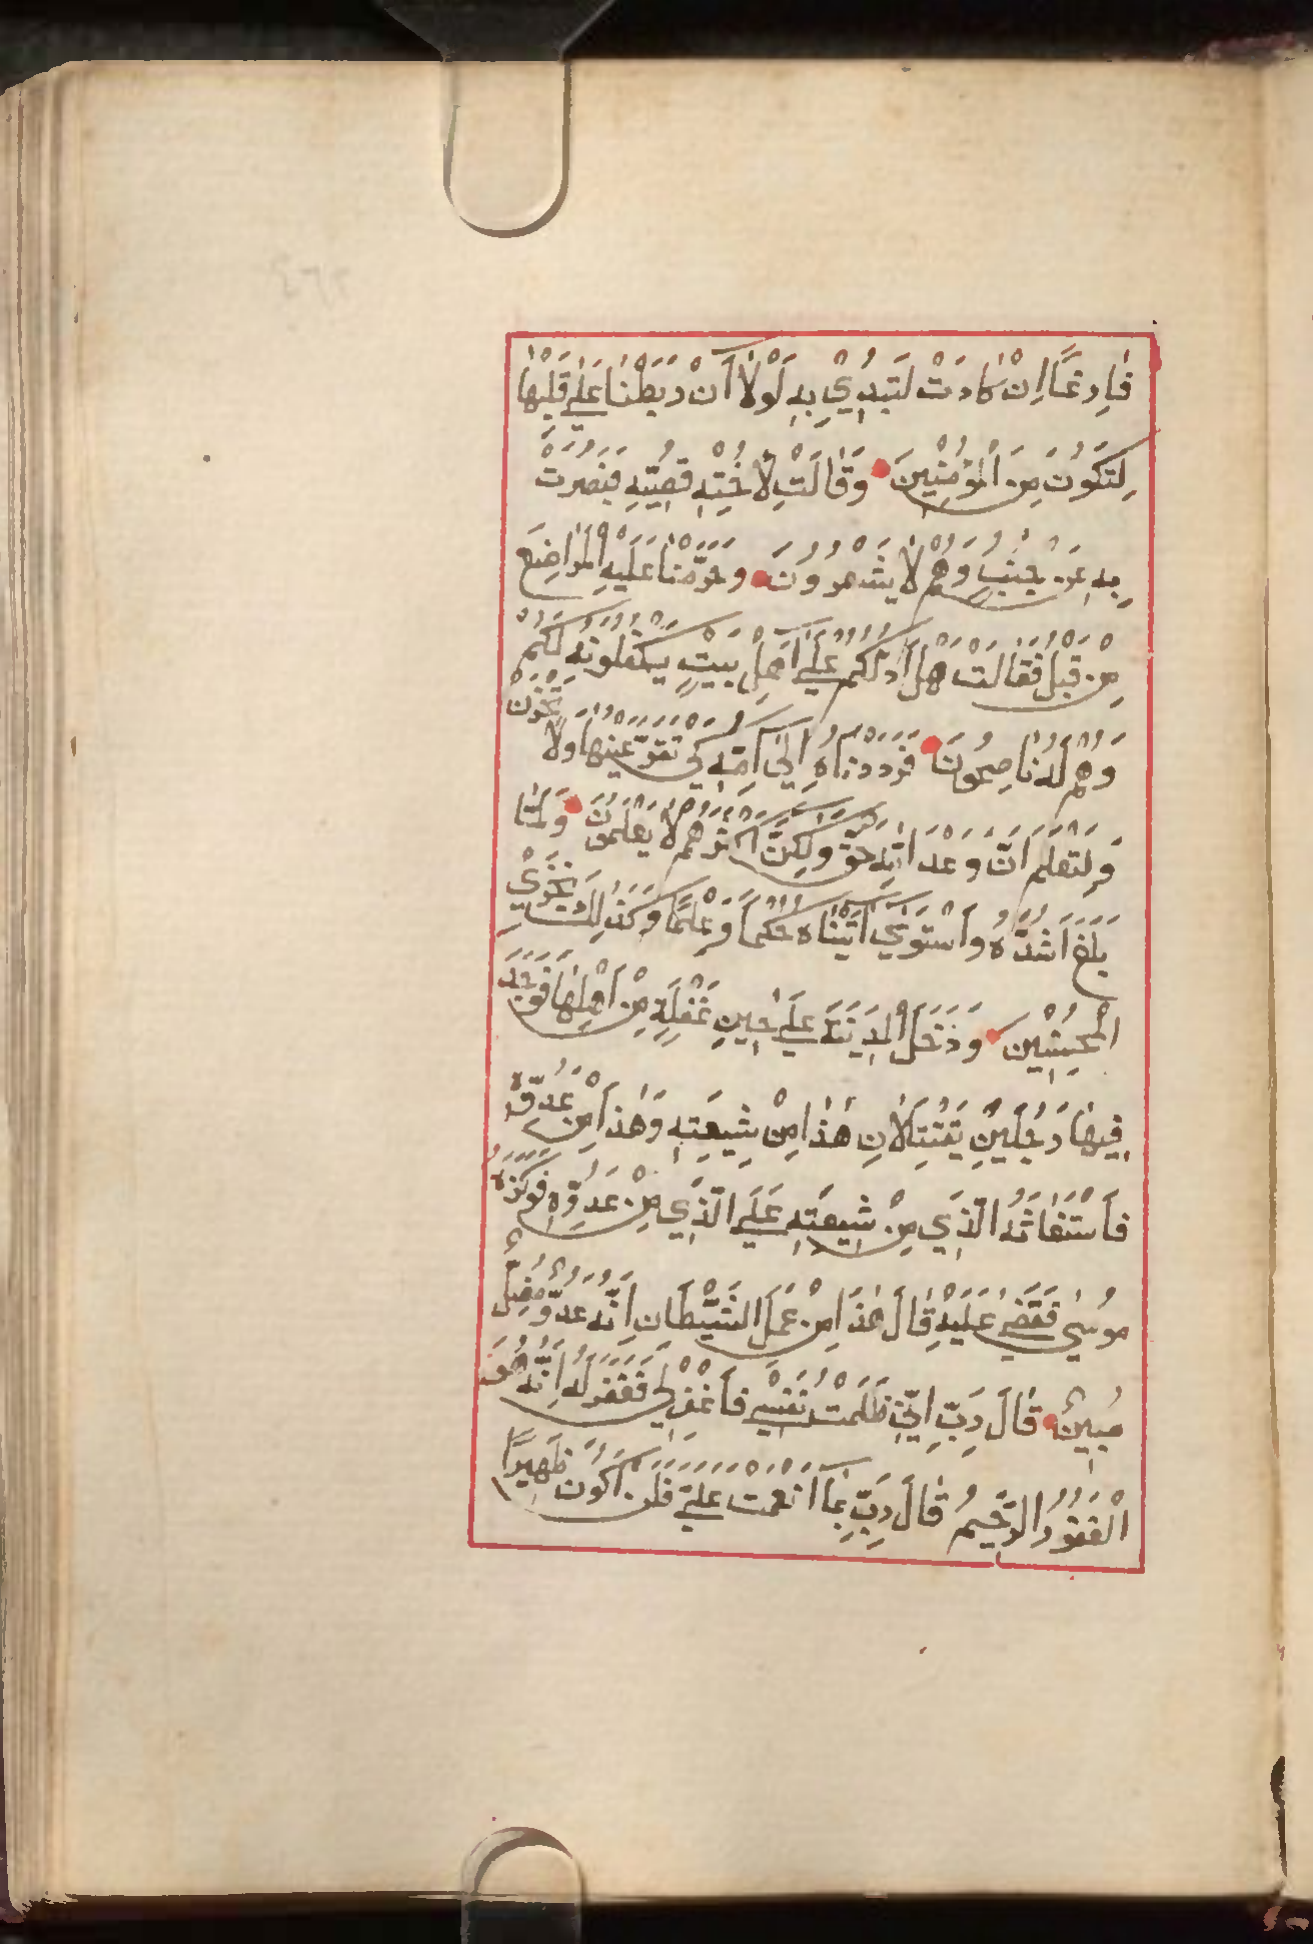 فٰارِغًا اِنْ كٰادَتْ لَتُبْدِيْ بِهِ لَوْلَا اَنْ رَبَطْنٰا عَلٰى قَلْبِهٰا
لِتَكُوْنَ مِنَ الْمُؤْمِنِيْنَ وَقٰالَتْ لِاُخْتِهِ قُصِّيْهِ فَبَصُرَتْ
بِهِ عَنْ جُنُبٍ وَهُمْ لٰا يَشْعُرُوْنَ وَحَرَّمْنٰا عَلَيْهِ الْمَرٰاضِعَ
مِنْ قَبْلُ فَقٰالَتْ هَلْ اَدُلُّكُمْ عَلٰى اَهْلِ بَيْتٍ يَكْفُلُوْنَهُ لَكُمْ
وَهُمْ لَهُ نٰاصِحُوْنَ فَرَدَدْنٰاهُ اِلٰى اُمِّهِ كَيْ تَقَرَّ عَيْنُهٰا وَلٰا تَحْزَنَ
وَلِتَعْلَمَ اَنَّ وَعْدَ اللّٰهِ حَقٌّ وَلٰكِنَّ اَكْثَرَهُمْ لٰا يَعْلَمُوْنَ وَلَمَّا
بَلَغَ اَشُدَّهُ وَاسْتَوٰى اٰتَيْنٰاهُ حُكْمًا وَعِلْمًا وَكَذٰلِكَ نَجْزِيْ
الْمُحْسِنِيْنَ وَدَخَلَ الْمَدِيْنَةَ عَلٰى حِيْنِ غَفْلَةٍ مِنْ اَهْلِهٰا فَوَجَدَ
فِيْهٰا رَجُلَيْنِ يَقْتَتِلٰانِ هٰذٰا مِنْ شِيْعَتِهِ وَهٰذٰا مِنْ عَدُوِّهِ
فَاسْتَغٰاثَهُ الَّذِيْ مِنْ شِيْعَتِهِ عَلَى الَّذِيْ مِنْ عَدُوِّهِ فَوَكَزَهُ
مُوْسٰى فَقَضٰى عَلَيْهِ قٰالَ هٰذٰا مِنْ عَمَلِ الشَّيْطَانِ اِنَّهُ عَدُوٌّ مُضِلٌّ
مُبِيْنٌ قٰالَ رَبِّ اِنِّيْ ظَلَمْتُ نَفْسِيْ فَاغْفِرْ لِيْ فَغَفَرَ لَهُ اِنَّهُ هُوَ
الْغَفُوْرُ الرَّحِيْمُ قٰالَ رَبِّ بِمٰا اَنْعَمْتَ عَلَيَّ فَلَنْ اَكُوْنَ ظَهِيْرًا